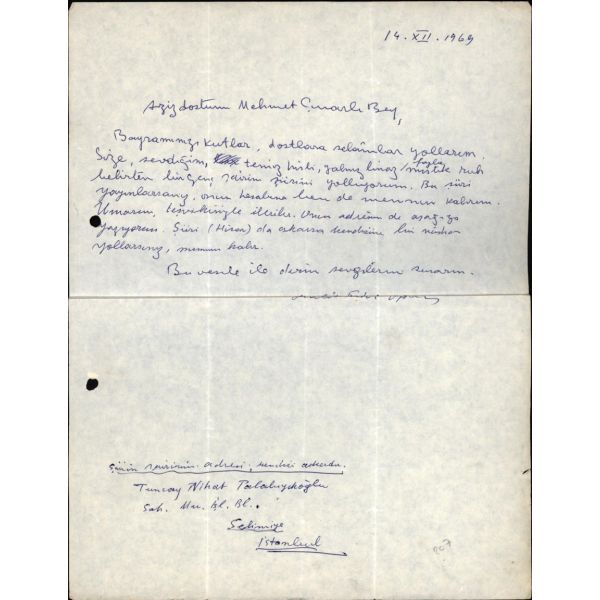 14.XII.1969
Aziz dostum Mehmet Çınarlı Bey,
Bayramınızı kutlar, dostlara selâmlar yollarım.
Size, sevdiğim, temiz hisli, yalnız biraz fazla mistik ruh
belirten bir genç şairin şiirini yolluyorum. Bu şiiri
yayınlarsanız, onun hesabına ben de memnun kalırım.
Umarım, teşvikinizle ilerler. Onun adresini de aşağıya
yazıyorum. Şiiri (Hisar) da çıkarsa kendisine bir nüsha
yollarsanız, memnun kalır.
Bu vesile ile derin sevgilerimi sunarım.
Şiirin şairinin adresi, kendisi askerde.
Tuncay Nihat Palabıyıkoğlu
Sah. Mu. Bl.
Selimiye
İstanbul